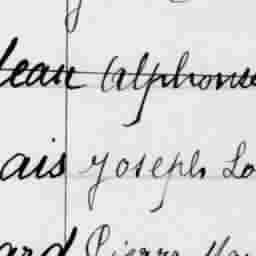 leau (alphonse
ais Joseph Lo
ard Pierre Ma